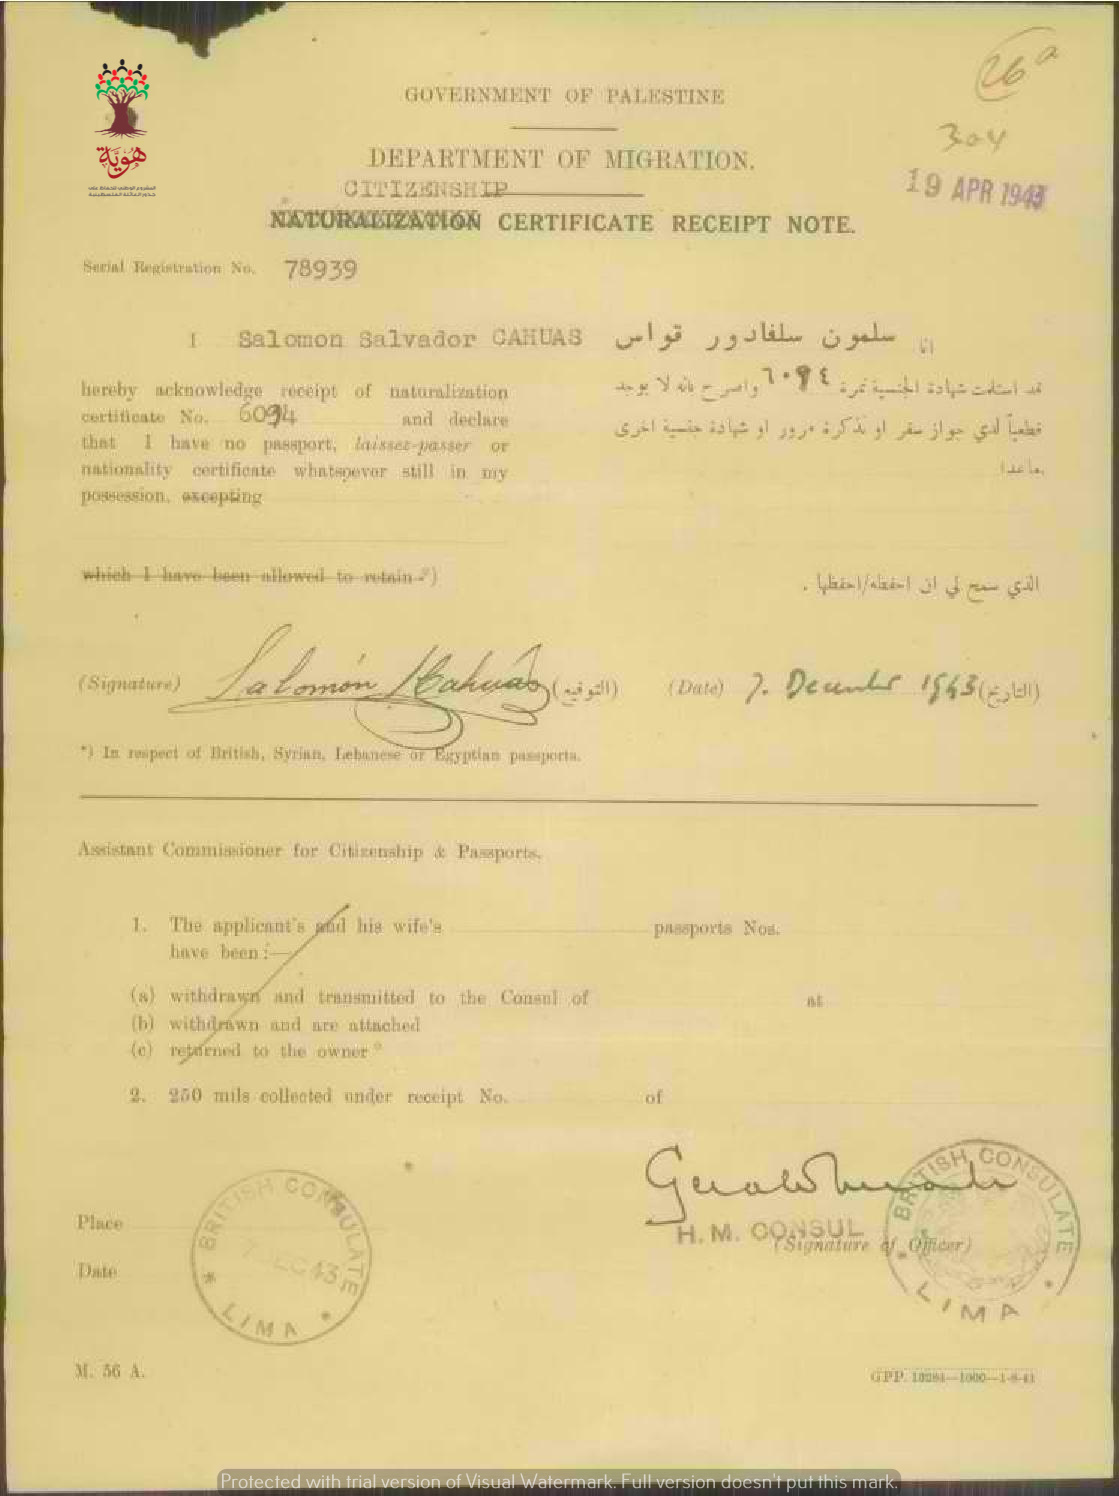 26 a
304
19 APR 1943
هوية
GOVERNMENT OF PALESTINE
DEPARTMENT OF MIGRATION.
CITIZENSHIP
NATURALIZATION CERTIFICATE RECEIPT NOTE.
Serial Registration No. 78939
I Salomon Salvador CAHUAS
انا سلمون سلفادور قواس
hereby acknowledge receipt of naturalization
certificate No. 6094 and declare
that I have no passport, laissez-passer or
nationality certificate whatsoever still in my
possession, excepting
قد استلمت شهادة الجنسية نمرة ٦٠٩٤ واصرح بانه لا يوجد
قطعياً لدي جواز سفر او تذكرة مرور او شهادة جنسية اخرى
ماعدا
which I have been allowed to retain *)
الذي سمح لي ان احفظه/احفظها .
(Signature) Salomón Cahuas (التوقيع) (Date) 7. December 1943 (التاريخ)
*) In respect of British, Syrian, Lebanese or Egyptian passports.
Assistant Commissioner for Citizenship & Passports.
1. The applicant's and his wife's passports Nos.
have been :—
(a) withdrawn and transmitted to the Consul of at
(b) withdrawn and are attached
(c) returned to the owner *
2. 250 mils collected under receipt No. of
H. M. CONSUL
(Signature of Officer)
BRITISH CONSULATE
* LIMA *
Place
Date
BRITISH CONSULATE
7 DEC 43
* LIMA *
M. 56 A.
GPP. 10284—1000—1-8-41
Protected with trial version of Visual Watermark. Full version doesn't put this mark.